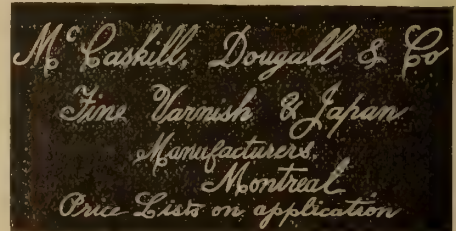 Mc Caskill, Dougall & Co
Fine Varnish & Japan
Manufacturers,
Montreal
Price Lists on application